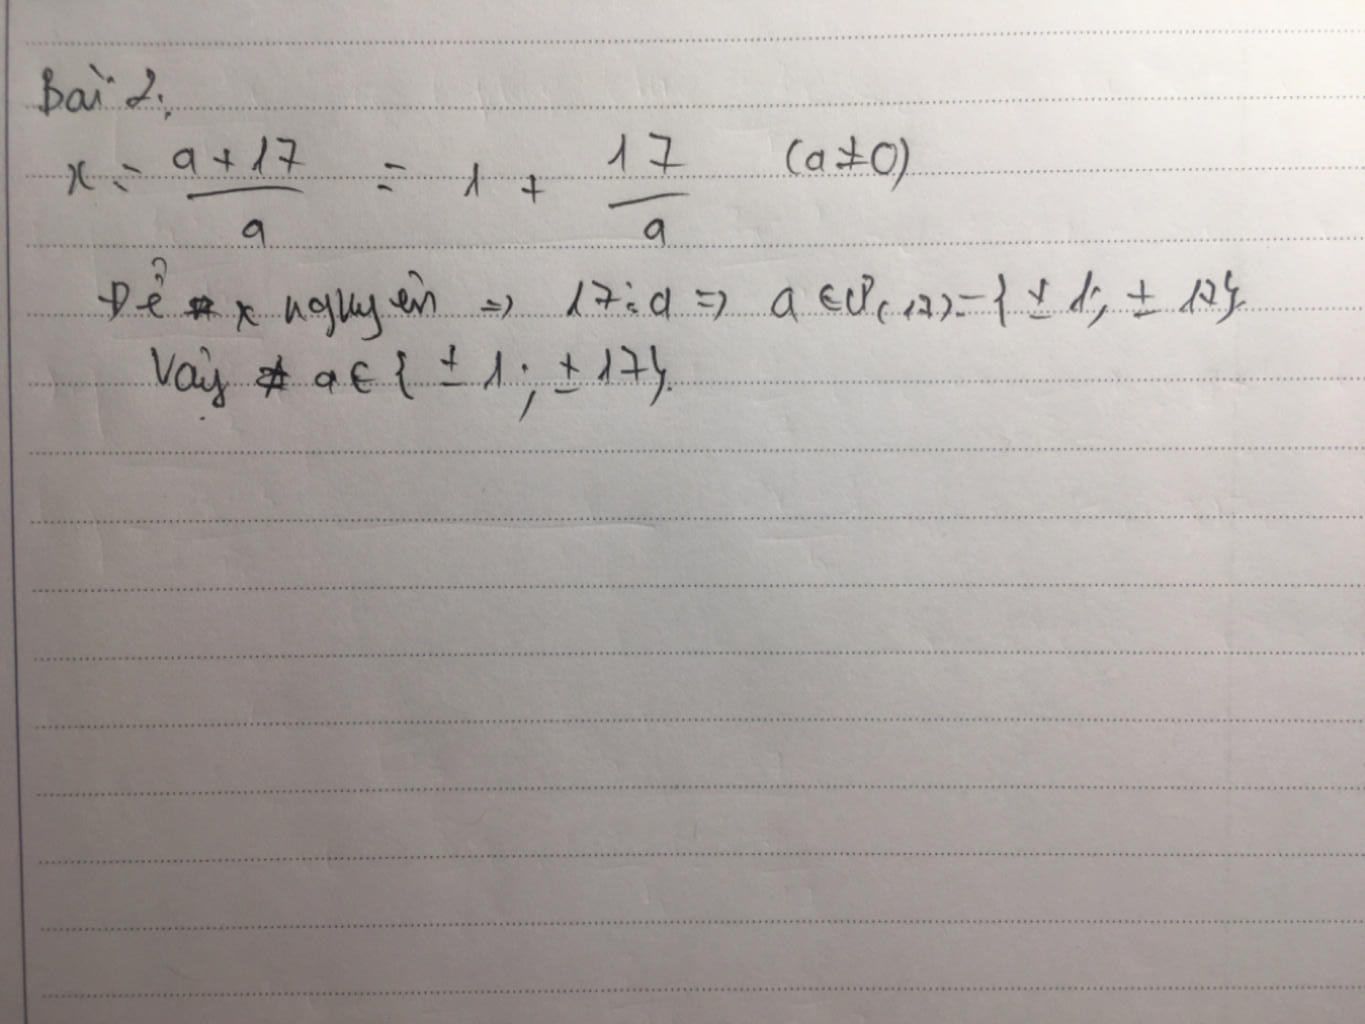 Bài 2:
x = a + 17 / a = 1 + 17 / a (a ≠ 0)
Để x nguyên => 17 ⋮ a => a ∈ Ư(17) = { ± 1; ± 17}
Vậy a ∈ { ± 1 ; ± 17}.